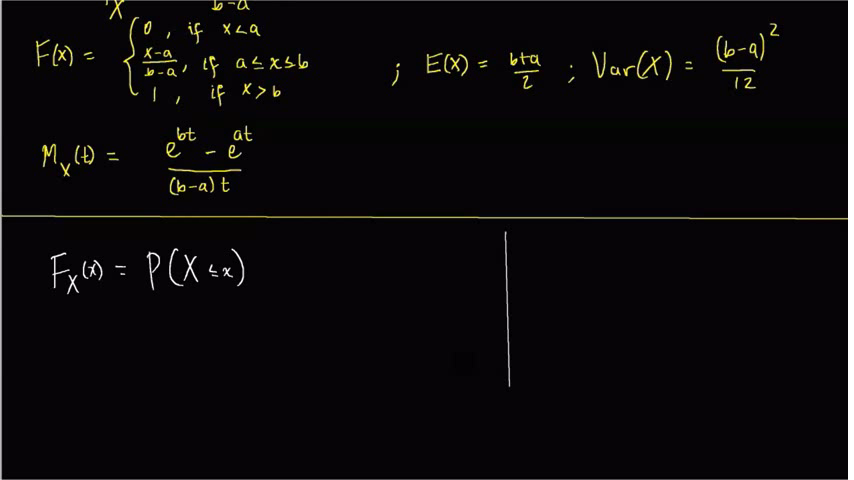 X b-a
F(x) = { 0, if x<a
x-a/b-a, if a≤x≤b ; E(X) = b+a/2 ; Var(X) = (b-a)²/12
1, if x>b
M_X(t) = e^bt - e^at/(b-a)t
F_X(x) = P(X≤x)